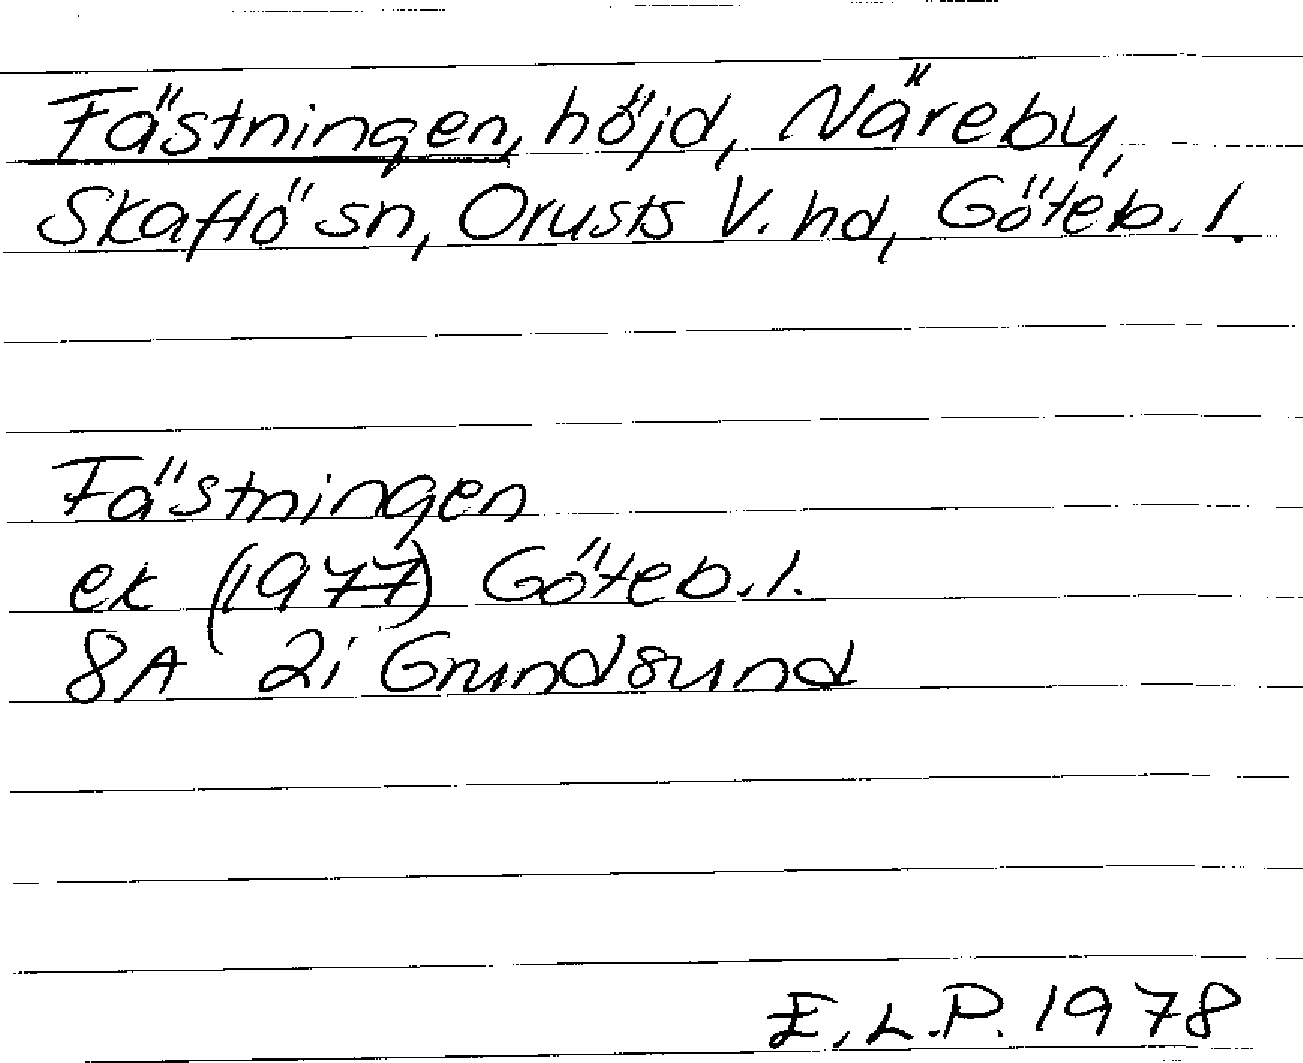 Fästningen, höjd, Näreby,
Skaftö sn, Orusts V. hd, Göteb. l.
Fästningen
ek (1977) Göteb. l.
8A 2i Grundsund
E.L.P. 1978